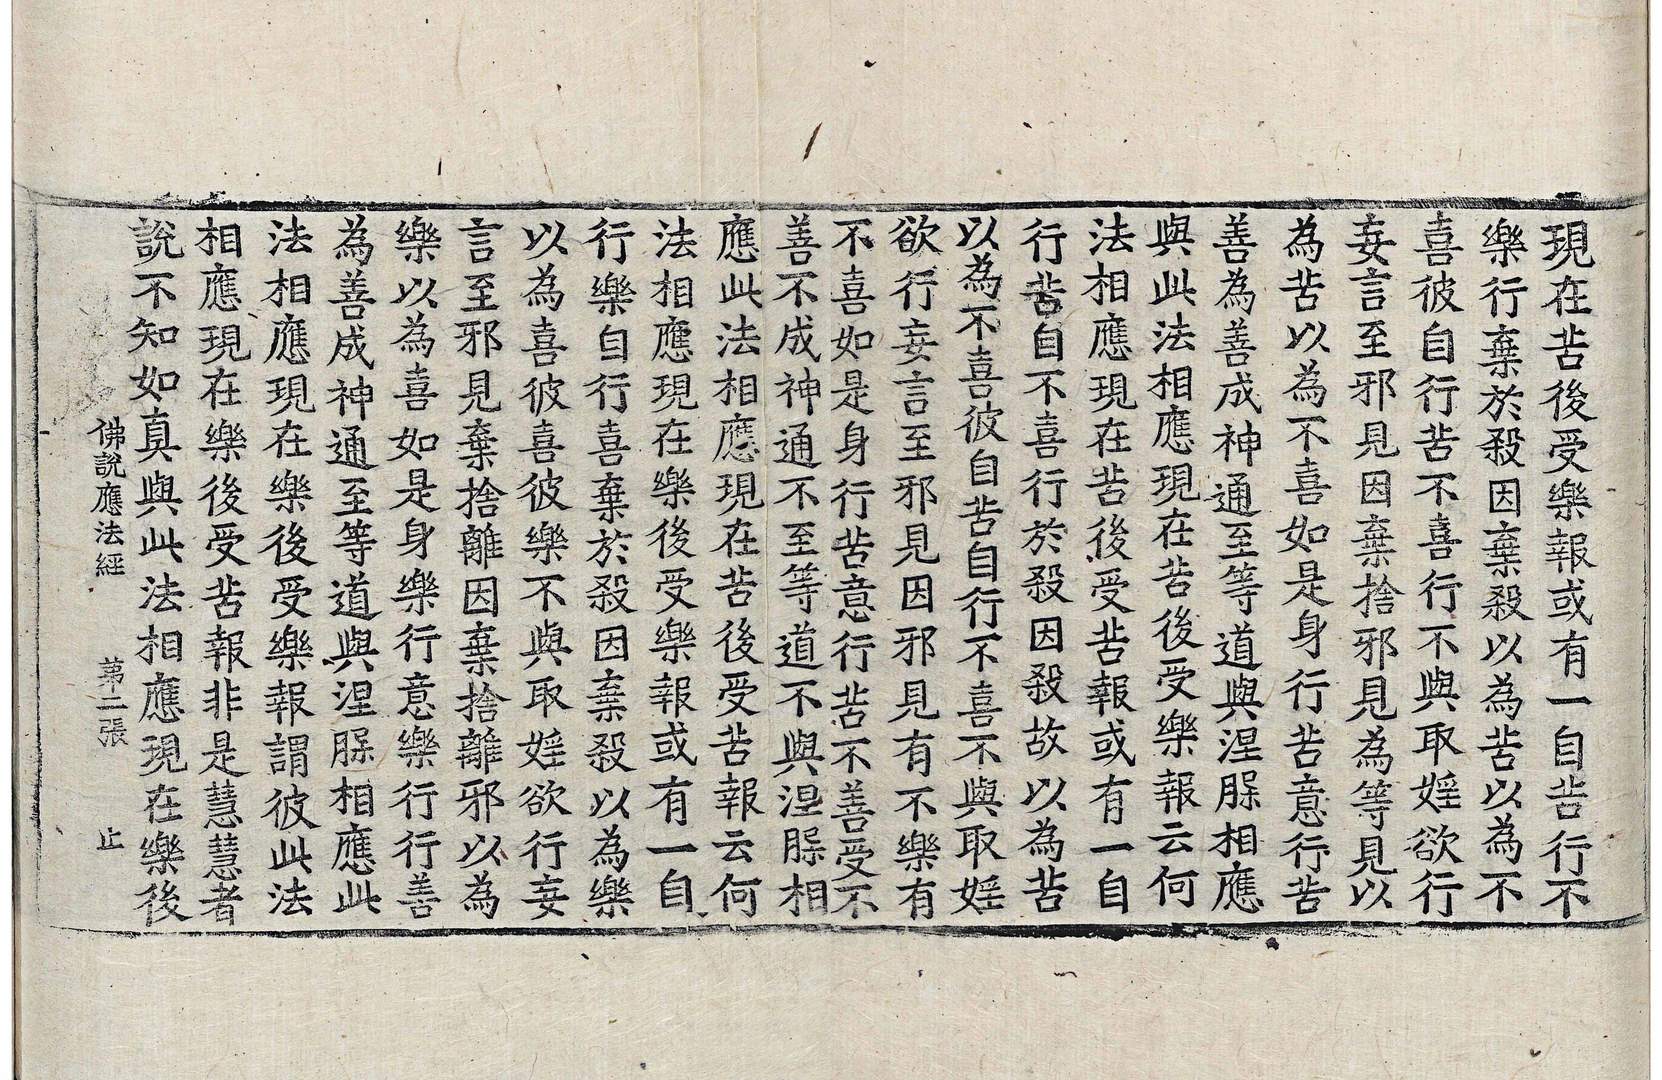 現在苦後受樂報或有一自苦行不
樂行棄於殺因棄殺以為苦以為不
喜彼自行苦不喜行不與取婬欲行
妄言至邪見因棄捨邪見為等見以
為苦以為不喜如是身行苦意行苦
善為善成神通至等道與涅槃相應
與此法相應現在苦後受樂報云何
法相應現在苦後受苦報或有一自
行苦自不喜行於殺因殺故以為苦
以為不喜彼自苦自行不喜不與取婬
欲行妄言至邪見因邪見有不樂有
不喜如是身行苦意行苦不善受不
善不成神通不至等道不與涅槃相
應此法相應現在苦後受苦報云何
法相應現在樂後受樂報或有一自
行樂自行喜棄於殺因棄殺以為樂
以為喜彼喜彼樂不與取婬欲行妄
言至邪見棄捨離因棄捨離邪以為
樂以為喜如是身樂行意樂行行善
為善成神通至等道與涅槃相應此
法相應現在樂後受樂報謂彼此法
相應現在樂後受苦報非是慧慧者
說不知如真與此法相應現在樂後
佛說應法經 第二張 止